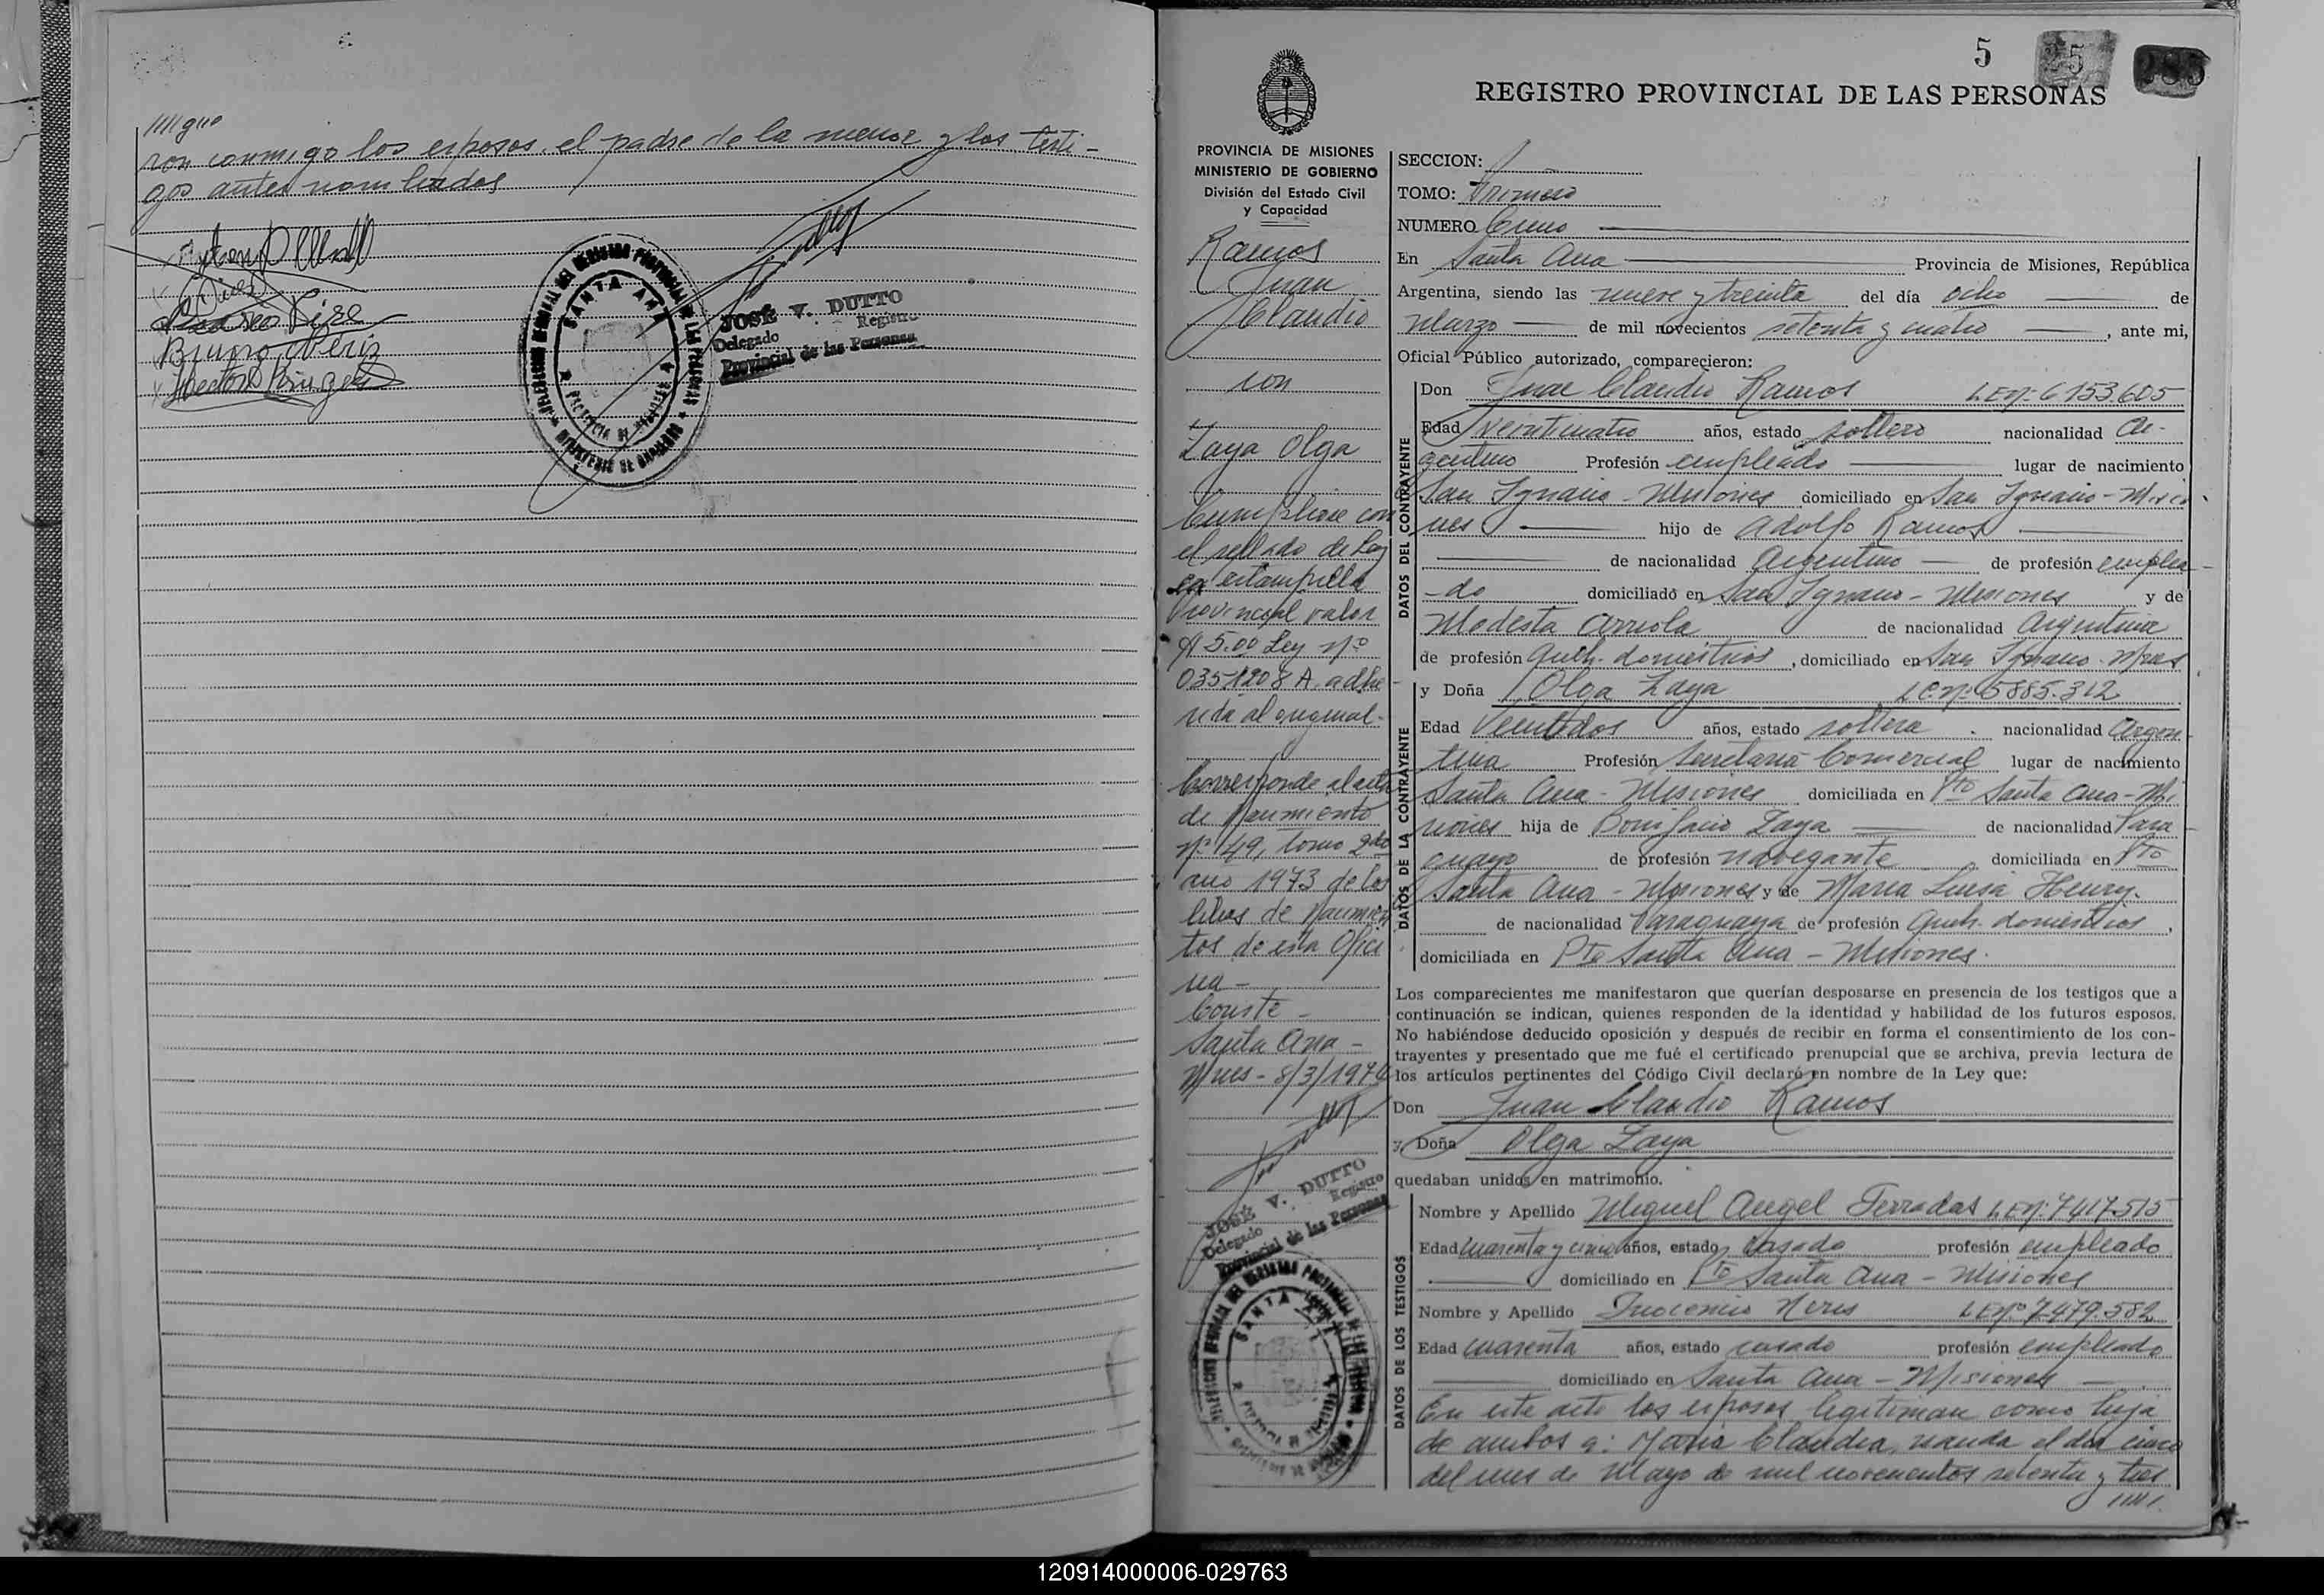 ////gno
ron conmigo los esposos, el padre de la menor y los testi-
gos antes nombrados
Bruno Neriz
DELEGACION REGIONAL DEL REGISTRO PROVINCIAL DE LAS PERSONAS
SANTA ANA
PROVINCIA DE MISIONES
JOSE V. DUTTO
Delegado Registro
Provincial de las Personas
5 25 285
REGISTRO PROVINCIAL DE LAS PERSONAS
PROVINCIA DE MISIONES
MINISTERIO DE GOBIERNO
División del Estado Civil
y Capacidad
Ramos
Juan
Claudio
con
Zaya Olga
Cumpliose con
el sellado de Ley
en estampilla
Provincial valor
$ 5.00 Ley Nº
0351208 A. adhe
rida al original.-
Corresponde al acta
de Nacimiento
Nº 49, tomo 2do
año 1973 de los
libros de Nacimien
tos de esta Ofici
na -
Conste -
Santa Ana -
Mnes - 8/3/1974
JOSE V. DUTTO
Delegado Registro
Provincial de las Personas
SANTA ANA
SECCION:
TOMO: Primero
NUMERO Cinco
En Santa Ana Provincia de Misiones, República
Argentina, siendo las nueve y treinta del día ocho de
Marzo de mil novecientos setenta y cuatro, ante mi,
Oficial Público autorizado, comparecieron:
DATOS DEL CONTRAYENTE
Don Juan Claudio Ramos L.E.Nº: 6.153.605
Edad veinticuatro años, estado soltero nacionalidad Ar-
gentino Profesión empleado lugar de nacimiento
San Ignacio - Misiones domiciliado en San Ignacio - Misio
nes hijo de Adolfo Ramos
de nacionalidad Argentino de profesión emplea-
-do domiciliado en San Ignacio - Misiones y de
Modesta Arriola de nacionalidad Argentina
de profesión Queh. domésticos, domiciliado en San Ignacio - Mnes
DATOS DE LA CONTRAYENTE
y Doña Olga Zaya L.C.Nº: 6885.312
Edad Veintidos años, estado soltera nacionalidad Argen
tina Profesión Secretaria Comercial lugar de nacimiento
Santa Ana - Misiones domiciliada en Pto Santa Ana - Mi
siones hija de Bonifacio Zaya de nacionalidad Para
guayo de profesión navegante, domiciliada en Pto
Santa Ana - Misiones y de Maria Luisa Henry.
de nacionalidad Paraguaya de profesión Queh. domésticos,
domiciliada en Pto Santa Ana - Misiones.
Los comparecientes me manifestaron que querían desposarse en presencia de los testigos que a
continuación se indican, quienes responden de la identidad y habilidad de los futuros esposos.
No habiéndose deducido oposición y después de recibir en forma el consentimiento de los con-
trayentes y presentado que me fué el certificado prenupcial que se archiva, previa lectura de
los artículos pertinentes del Código Civil declaró en nombre de la Ley que:
Don Juan Claudio Ramos
y Doña Olga Zaya
quedaban unidos en matrimonio.
DATOS DE LOS TESTIGOS
Nombre y Apellido Miguel Angel Terradas L.E.Nº: 7417.515
Edad cuarenta y cinco años, estado Casado profesión empleado
domiciliado en Pto Santa Ana - Misiones
Nombre y Apellido Inocencio Neris L.E.Nº 7.479.582
Edad cuarenta años, estado casado profesión empleado
domiciliado en Santa Ana - Misiones
En este acto los esposos legitiman como hija
de ambos a: Maria Claudia, nacida el dia cinco
del mes de Mayo de mil novecientos setenta y tres
////.
120914000006-029763